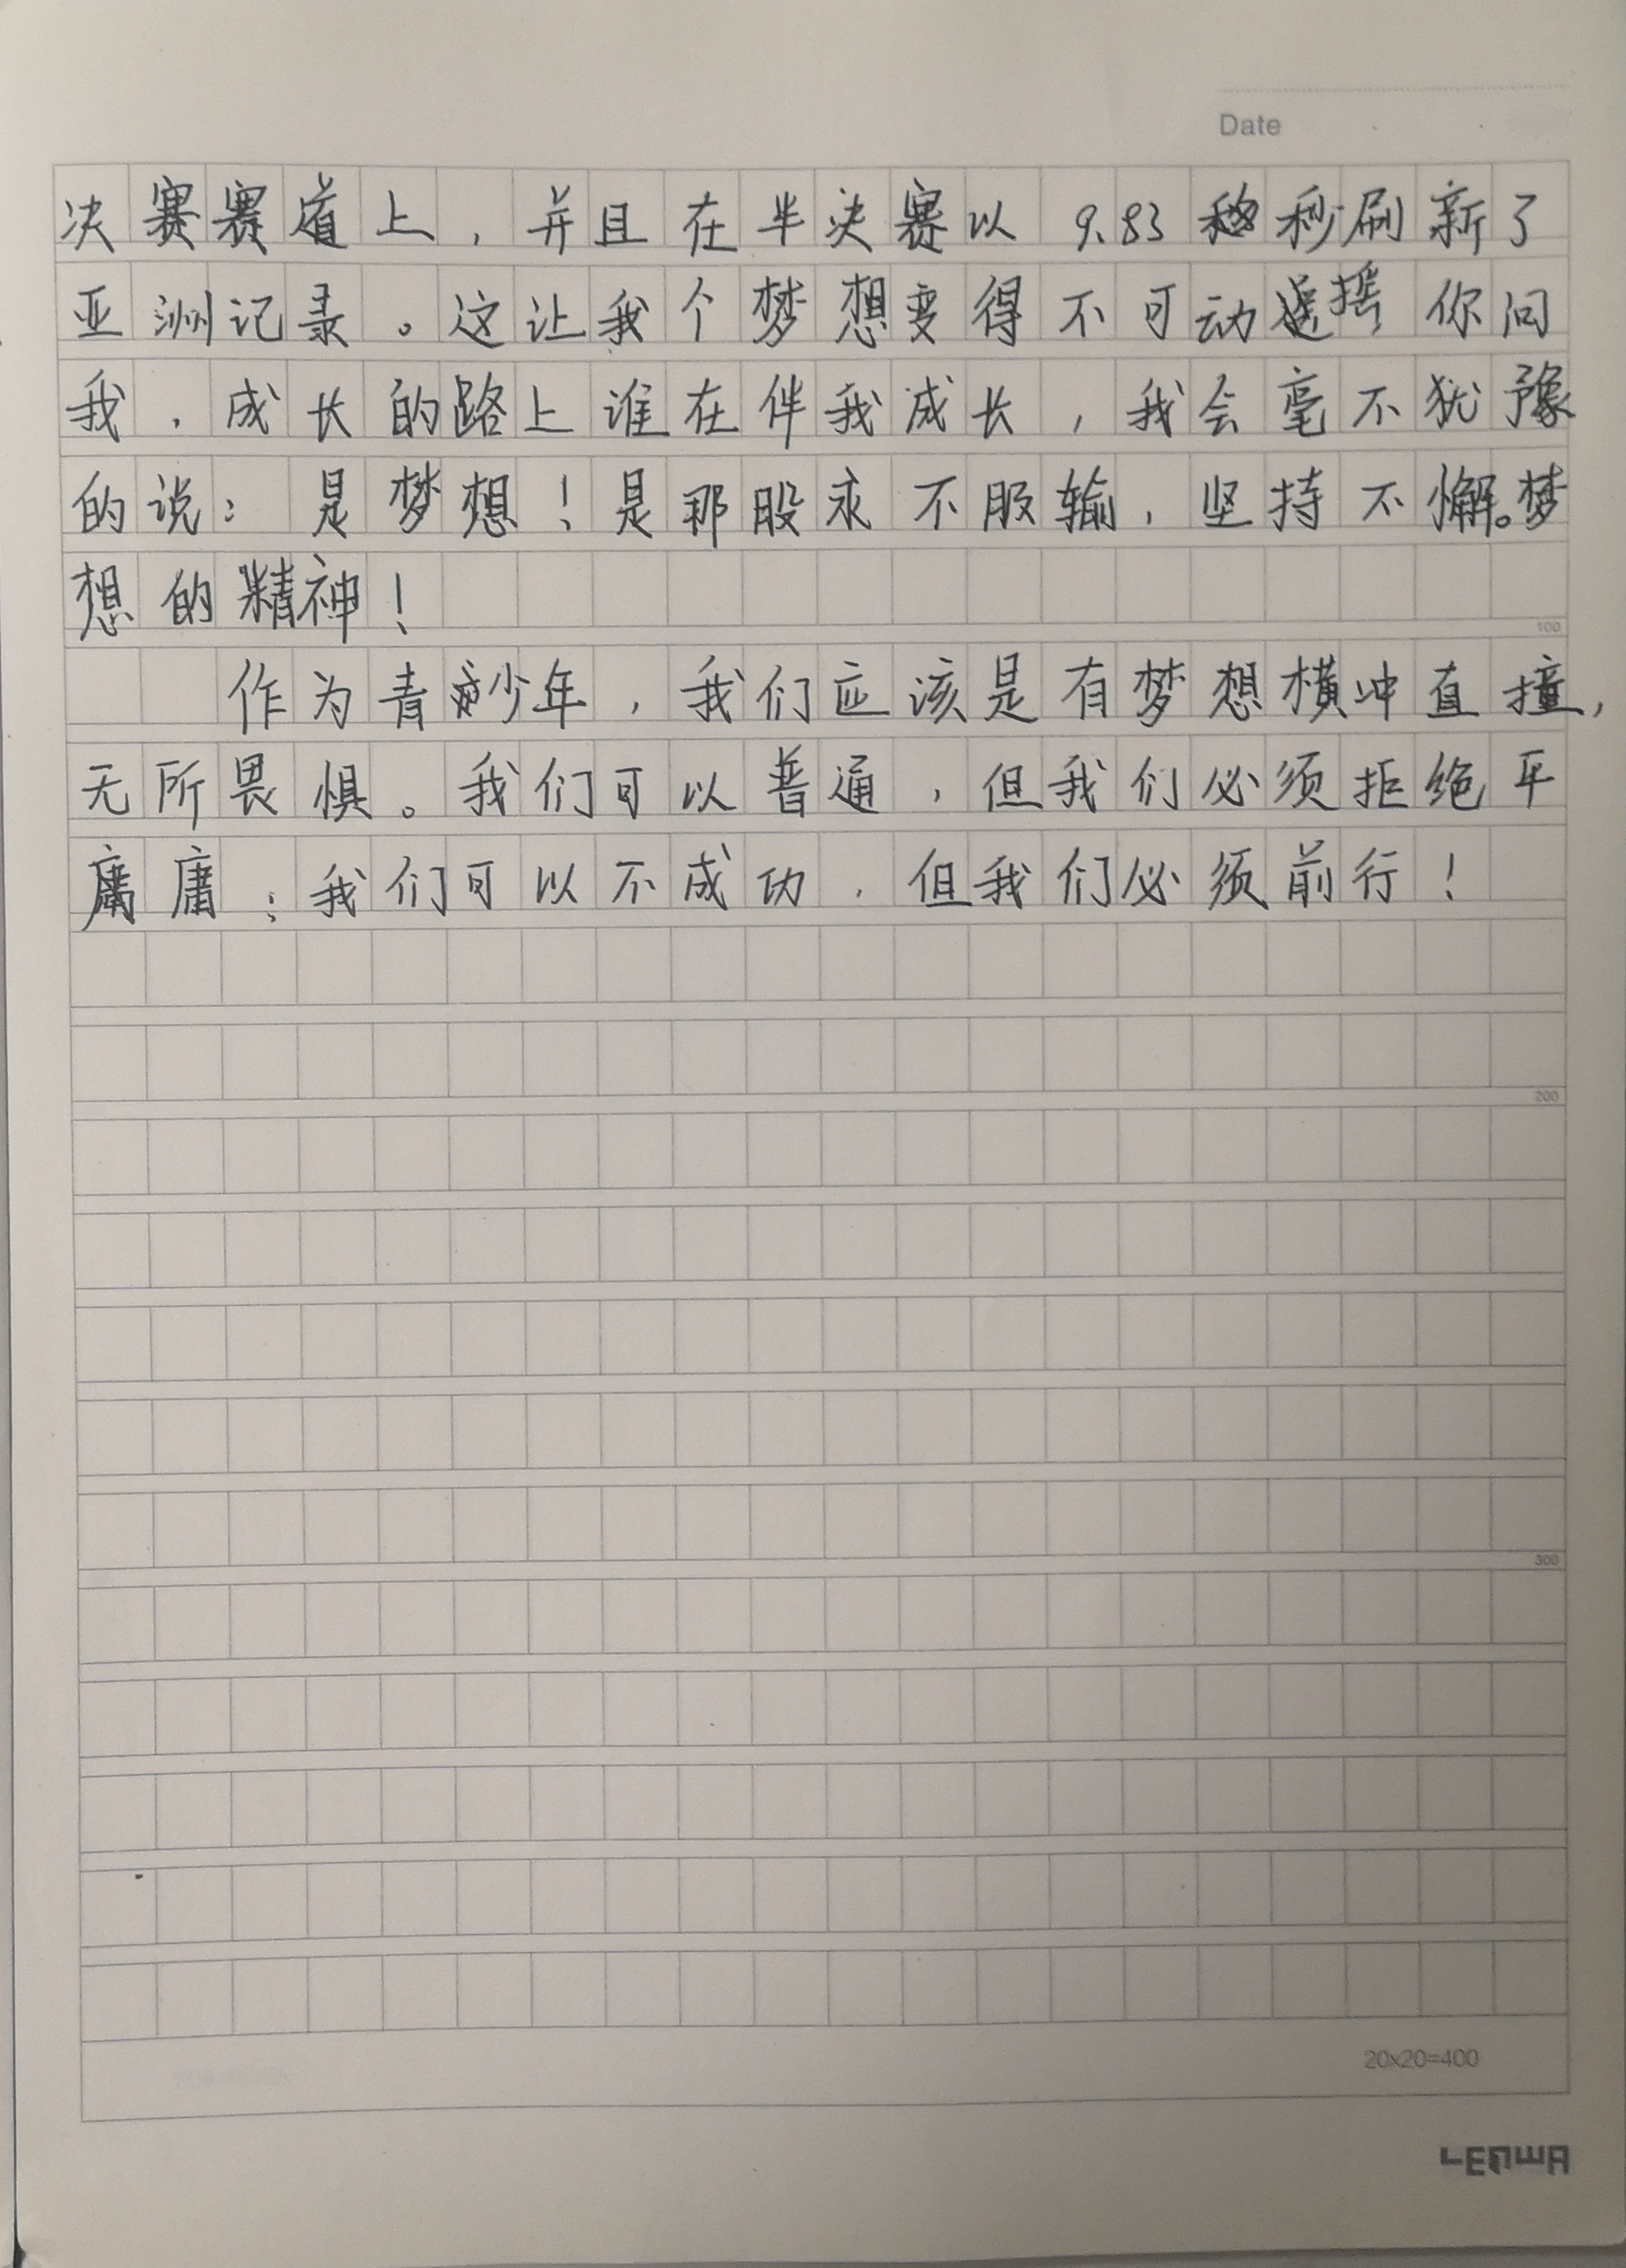 Date
决赛赛道上，并且在半决赛以9.83秒刷新了
亚洲记录。这让我个梦想变得不可动摇 你问
我，成长的路上谁在伴我成长，我会毫不犹豫
的说：是梦想！是那股永不服输，坚持不懈。梦
想的精神！
100
作为青少年，我们应该是有梦想横冲直撞，
无所畏惧。我们可以普通，但我们必须拒绝平
庸；我们可以不成功，但我们必须前行！
200
300
20x20=400
LENWA